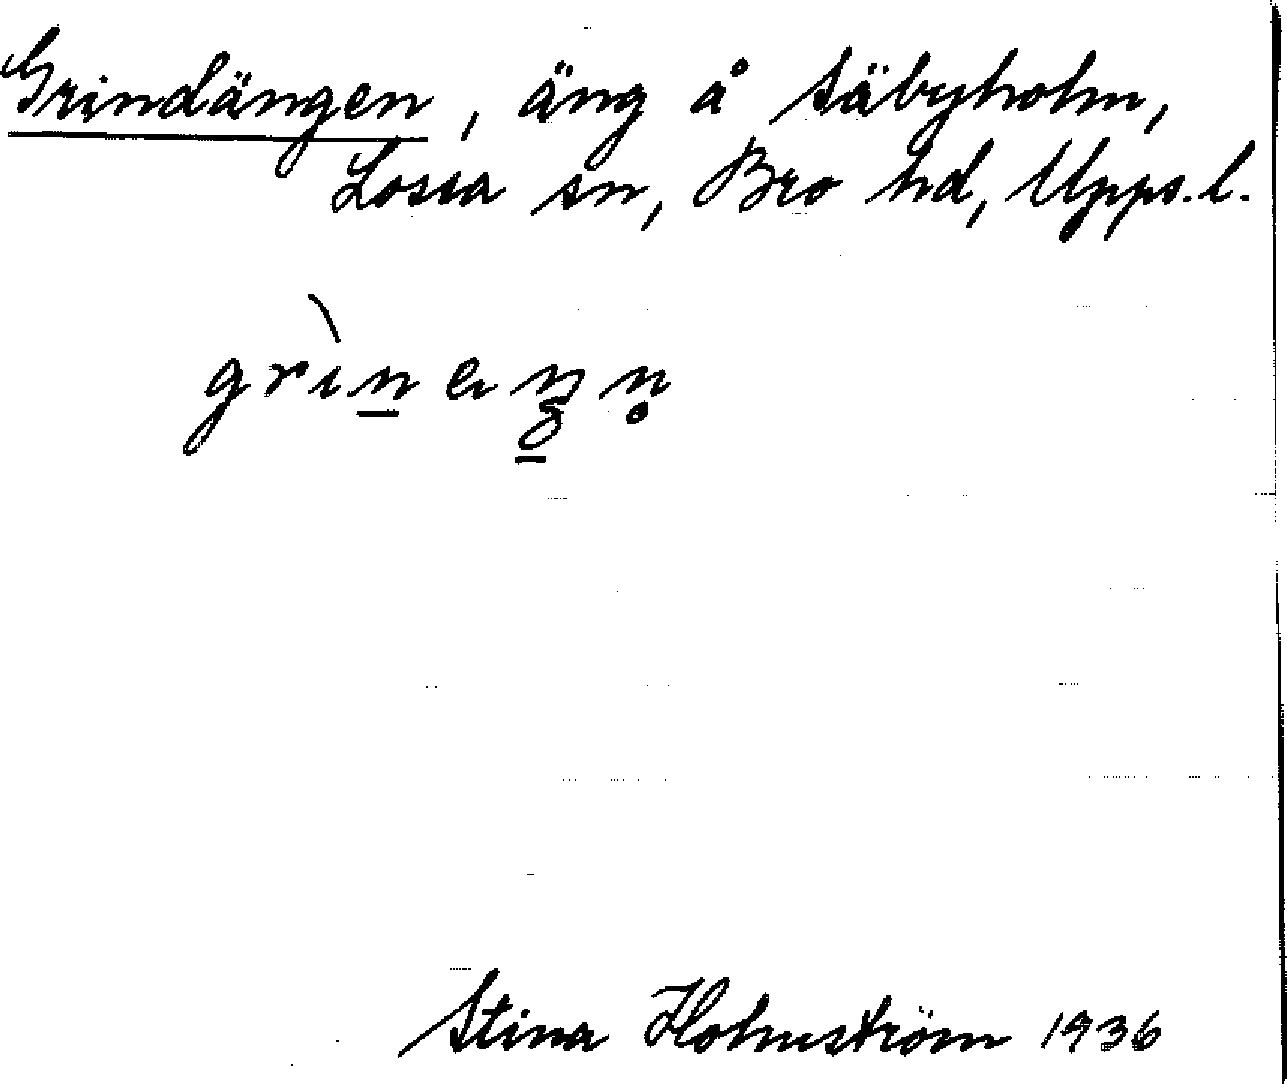 Grindängen, äng å Säbyholm,
Lossa sn, Bro hd, Upps. l.
Stina Holmström 1936